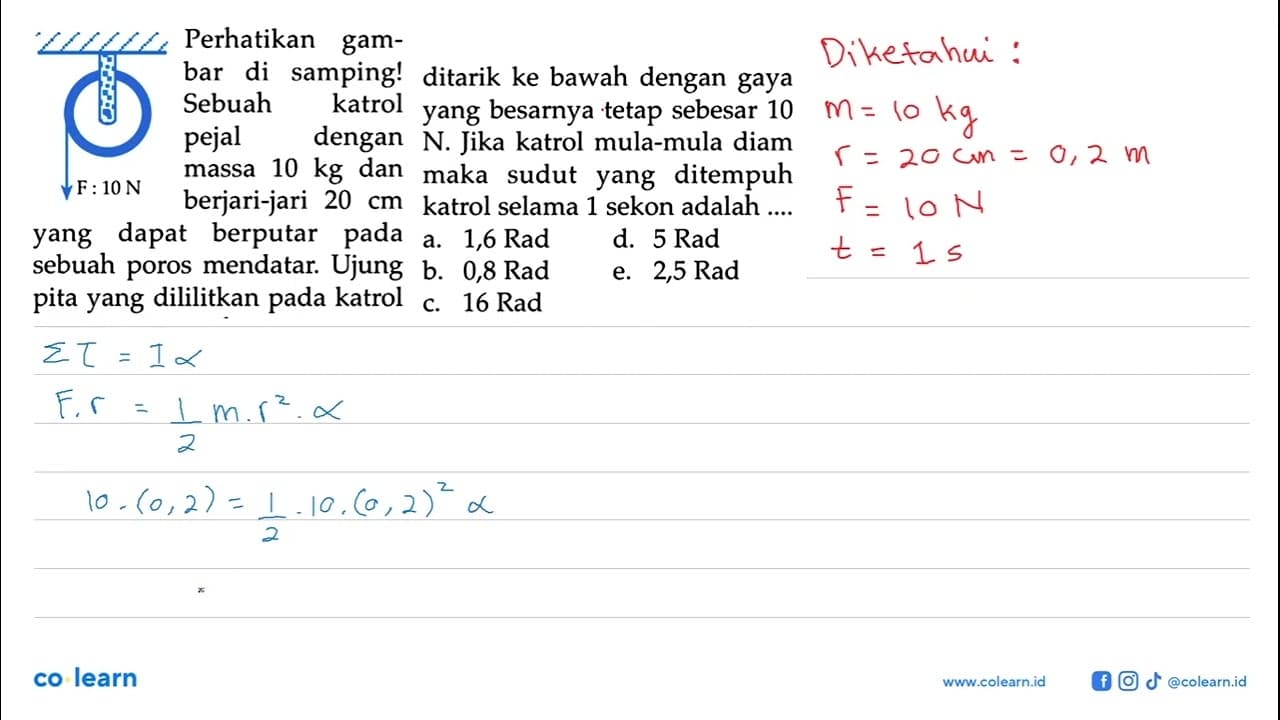 Perhatikan gam-
bar di samping!
Sebuah katrol
pejal dengan
massa 10 kg dan
berjari-jari 20 cm
yang dapat berputar pada
sebuah poros mendatar. Ujung
pita yang dililitkan pada katrol
F : 10 N
ditarik ke bawah dengan gaya
yang besarnya tetap sebesar 10
N. Jika katrol mula-mula diam
maka sudut yang ditempuh
katrol selama 1 sekon adalah ....
a. 1,6 Rad d. 5 Rad
b. 0,8 Rad e. 2,5 Rad
c. 16 Rad
Diketahui :
m = 10 kg
r = 20 cm = 0,2 m
F = 10 N
t = 1 s
Στ = I α
F. r = 1/2 m. r². α
10. (0,2) = 1/2 . 10. (0,2)² α
co learn
www.colearn.id
@colearn.id